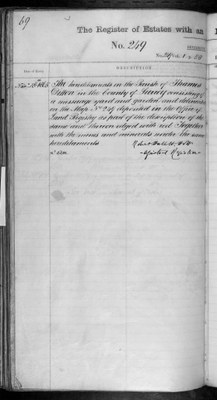 69
The Register of Estates with an
No. 249
DESCRIPTION
The hereditaments in the Parish of Thames
Ditton in the County of Surrey consisting of
a messuage yard and garden and delineated
on the Map No 249 deposited in the Office of
Land Registry as part of the description of the
same and thereon edged with red Together
with the mines and minerals under the same
hereditaments
Assistant Registrar